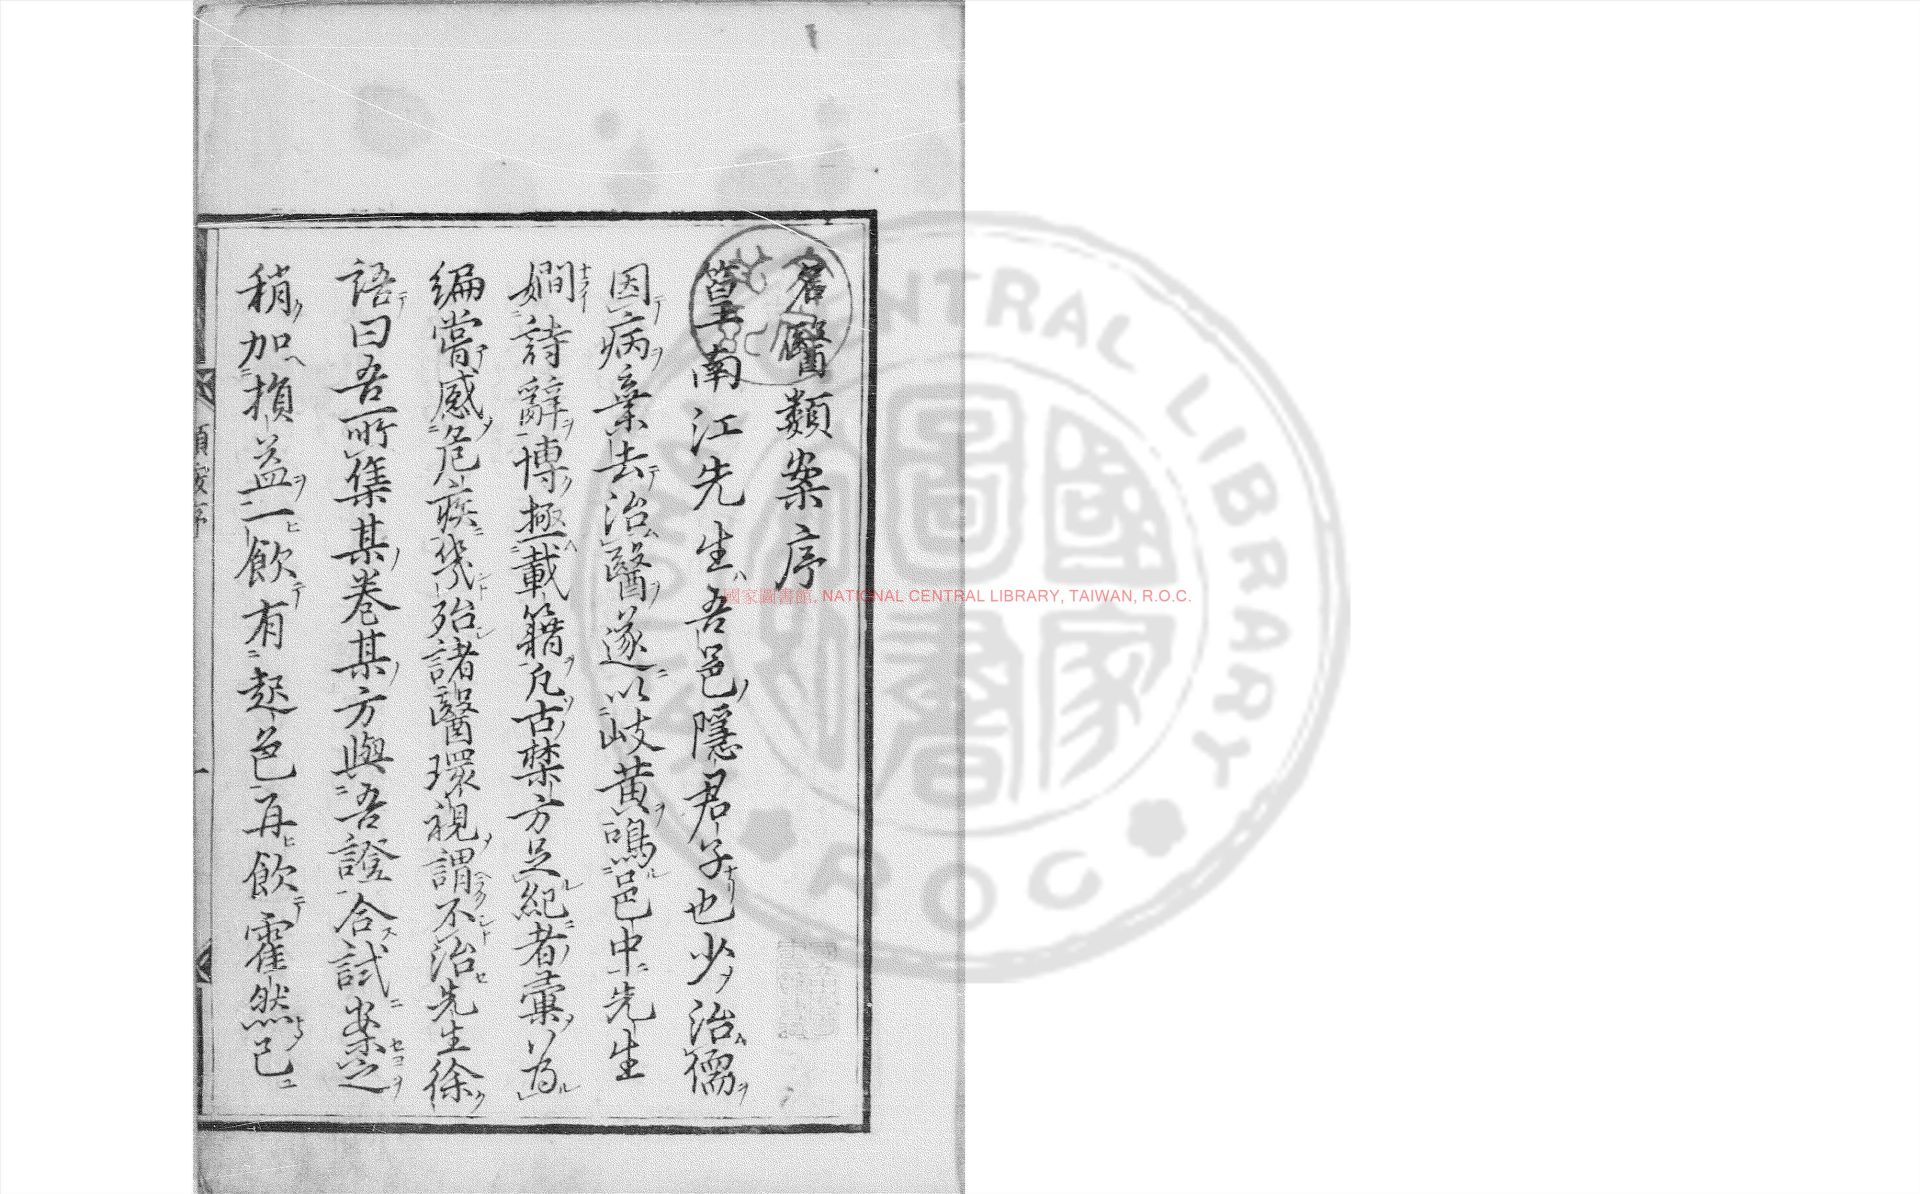 名醫類案序
篁南江先生吾邑隱君子也少治儒
因病棄去治醫遂以岐黄鳴邑中先生
嫺詩辭博極載籍凡古禁方足紀者彙為
編嘗感危疾幾殆諸醫環視謂不治先生徐
語曰吾所集某卷某方與吾證合試案之
稍加損益一飲有起色再飲霍然已
類案序
國家圖書館, NATIONAL CENTRAL LIBRARY, TAIWAN, R.O.C.